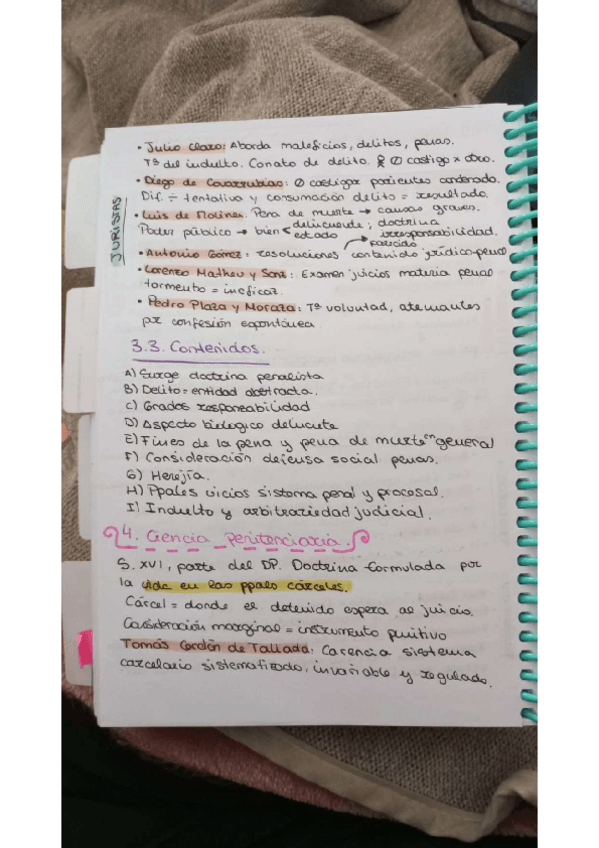 JURISTAS
• Julio Claro: Aborda maleficios, delitos, penas.
Tª del indulto. Conato de delito. Ø castigo x otro.
• Diego de Covarrubias: Ø castigar parientes condenado.
Dif. ÷ tentativa y consumación delito = resultado.
• Luis de Molina: Pena de muerte → causas graves.
Poder público → bien < delincuente; doctrina
estado irresponsabilidad.
• Antonio Gómez: resoluciones contenido jurídico-penal
Parecido
• Lorenzo Matheu y Sanz: Examen juicios materia penal
tormento = ineficaz.
• Pedro Plaza y Moraza: Tª voluntad, atenuantes
por confesión espontánea
3.3. Contenidos.
A) Surge doctrina penalista
B) Delito = entidad abstracta.
C) Grados responsabilidad
D) Aspecto biologico delincuente
E) Fines de la pena y pena de muerte en general
F) Consideración defensa social penas.
G) Herejía.
H) Ppales vicios sistema penal y procesal.
I) Indulto y arbitrariedad judicial.
4. Ciencia Penitenciaria.
S. XVI, parte del DP. Doctrina formulada por
la vida en las ppales cárceles.
Cárcel = donde el detenido espera al juicio.
Consideración marginal = instrumento punitivo
Tomás Cerdán de Tallada: Carencia sistema
carcelario sistematizado, invariable y regulado.